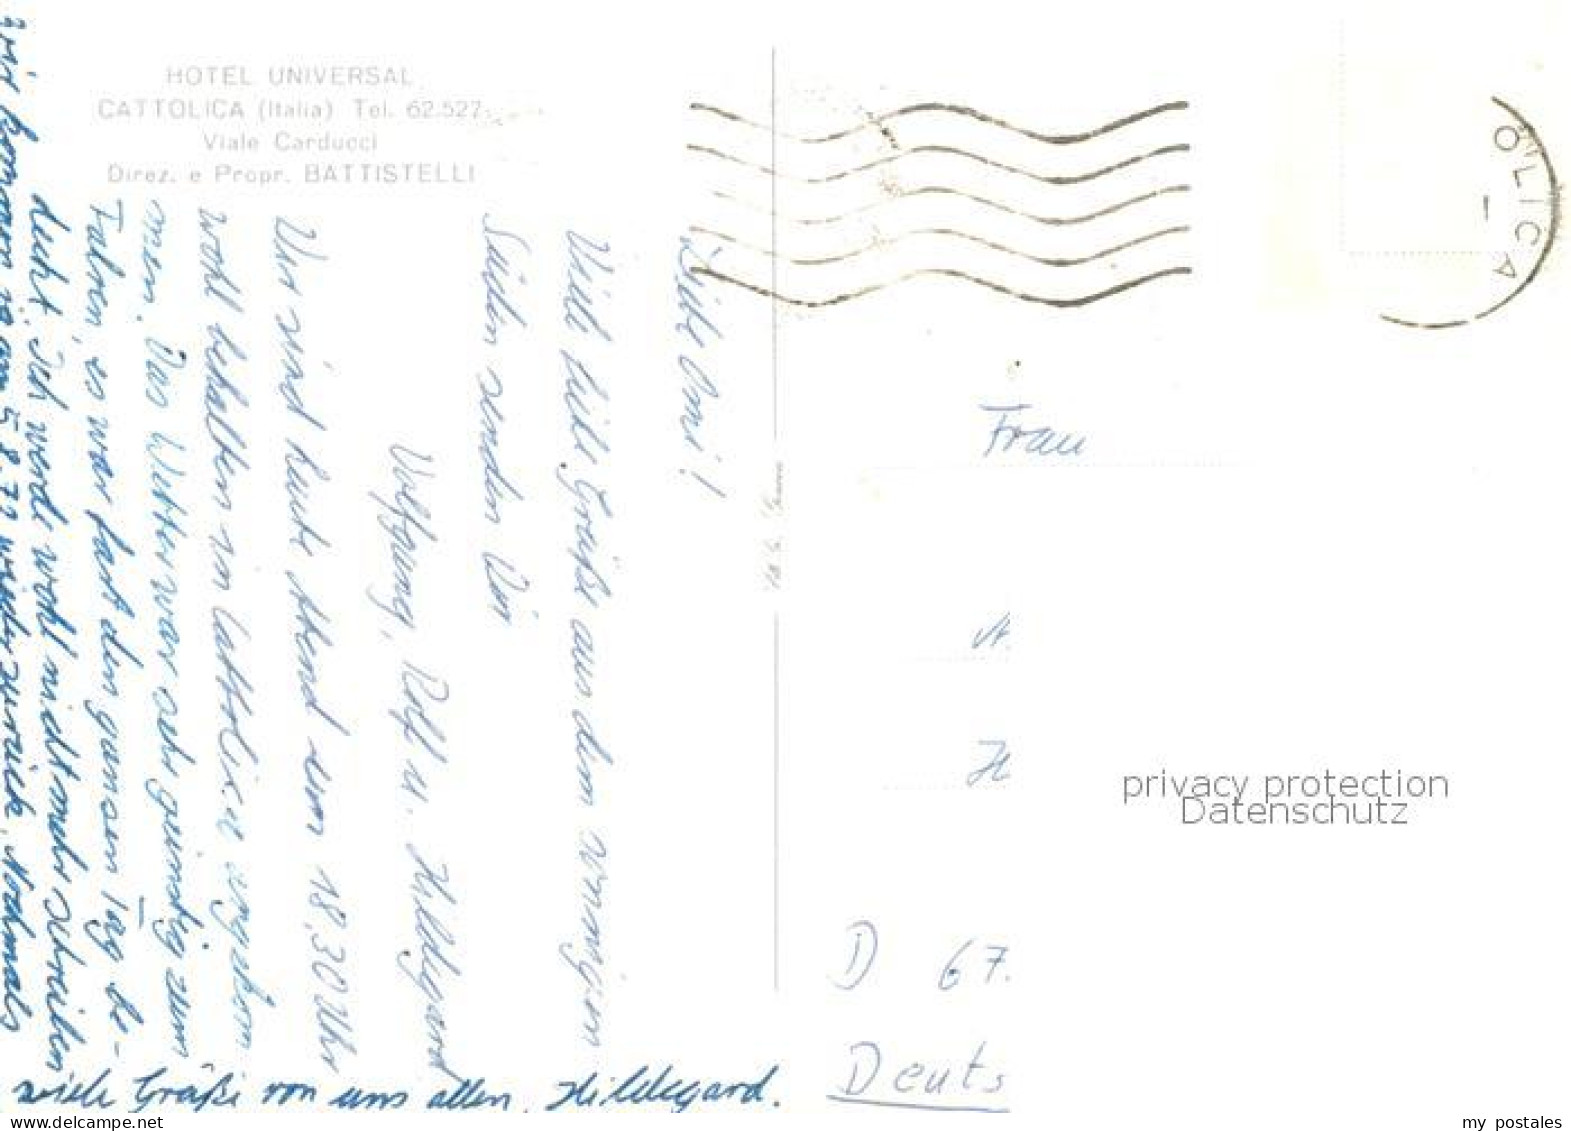 HOTEL UNIVERSAL
CATTOLICA (Italia) Tel. 62.527
Viale Carducci
Direz. e Propr. BATTISTELLI
Liebe Omi!
Viele liebe Grüße aus dem sonnigen
Süden senden Dir
Wolfgang, Rolf u. Hildegard
Wir sind heute Abend um 18,30 Uhr
wohl behalten in Cattolica angekom-
men. Das Wetter war sehr günstig zum
Fahren, es war fast den ganzen Tag be-
deckt. Ich werde wohl nicht mehr schreiben
wir kommen ja am 5.8.72 wieder zurück. Nochmals
viele Grüße von uns allen, Hildegard.
OLICA
Frau
D 67.
Deuts
privacy protection
Datenschutz
my-postcard.com
my_postales